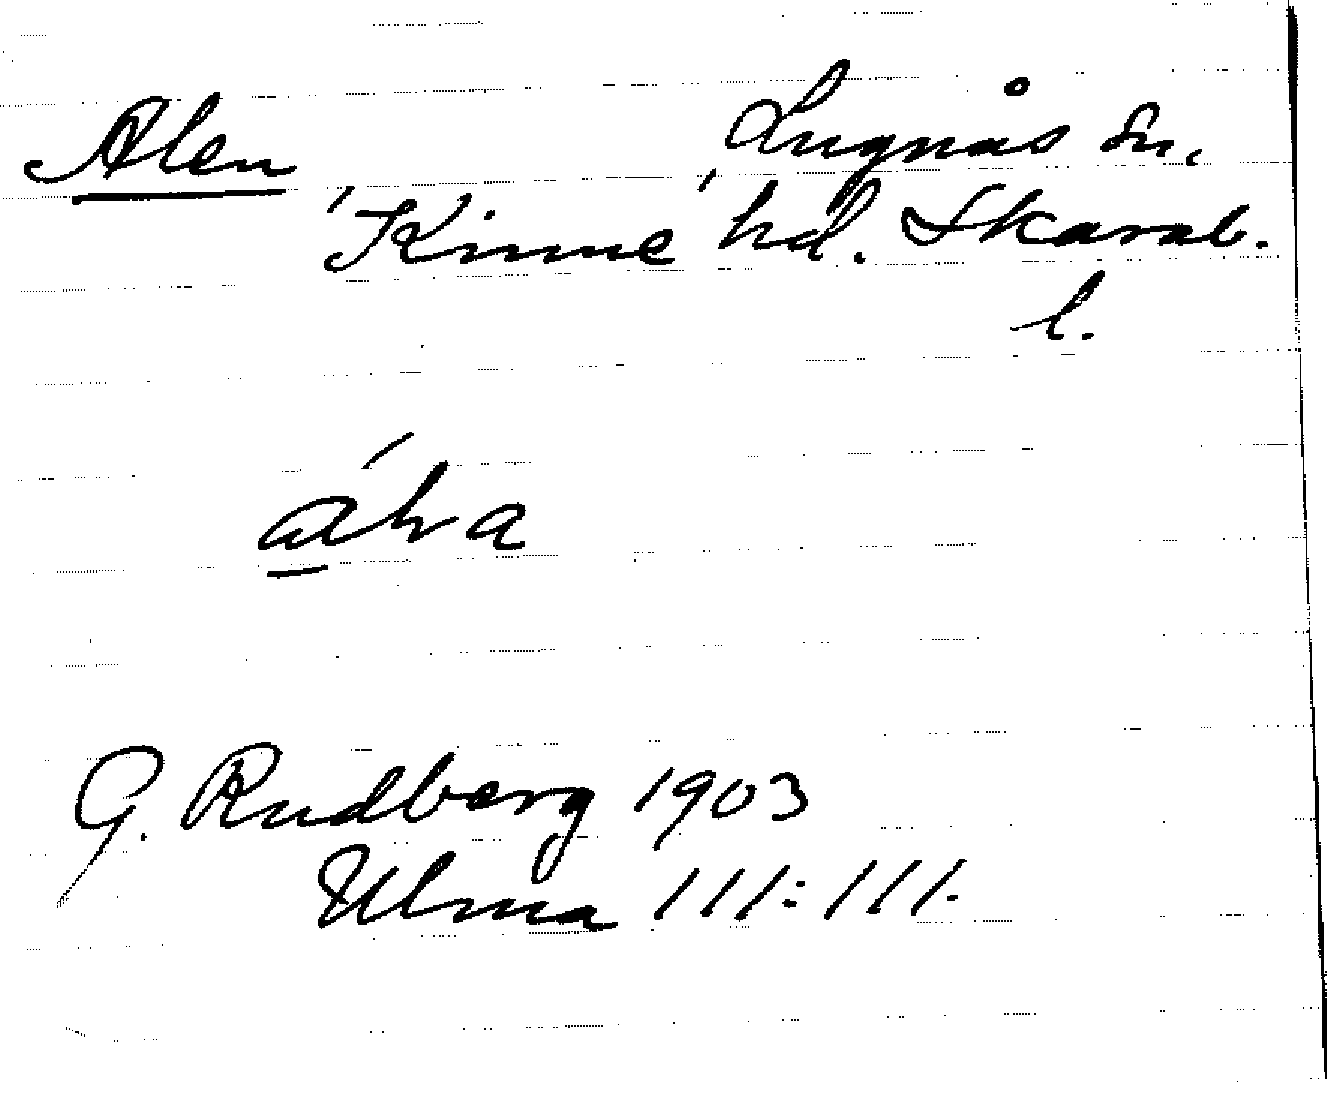 Alen Lugnås sn,
Kinne hd. Skarab.
l.
åka
G. Rudberg 1903
Ulma 111:111.